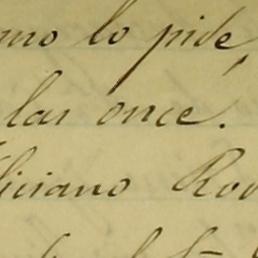 mo lo pide
las once.
liciano Rod